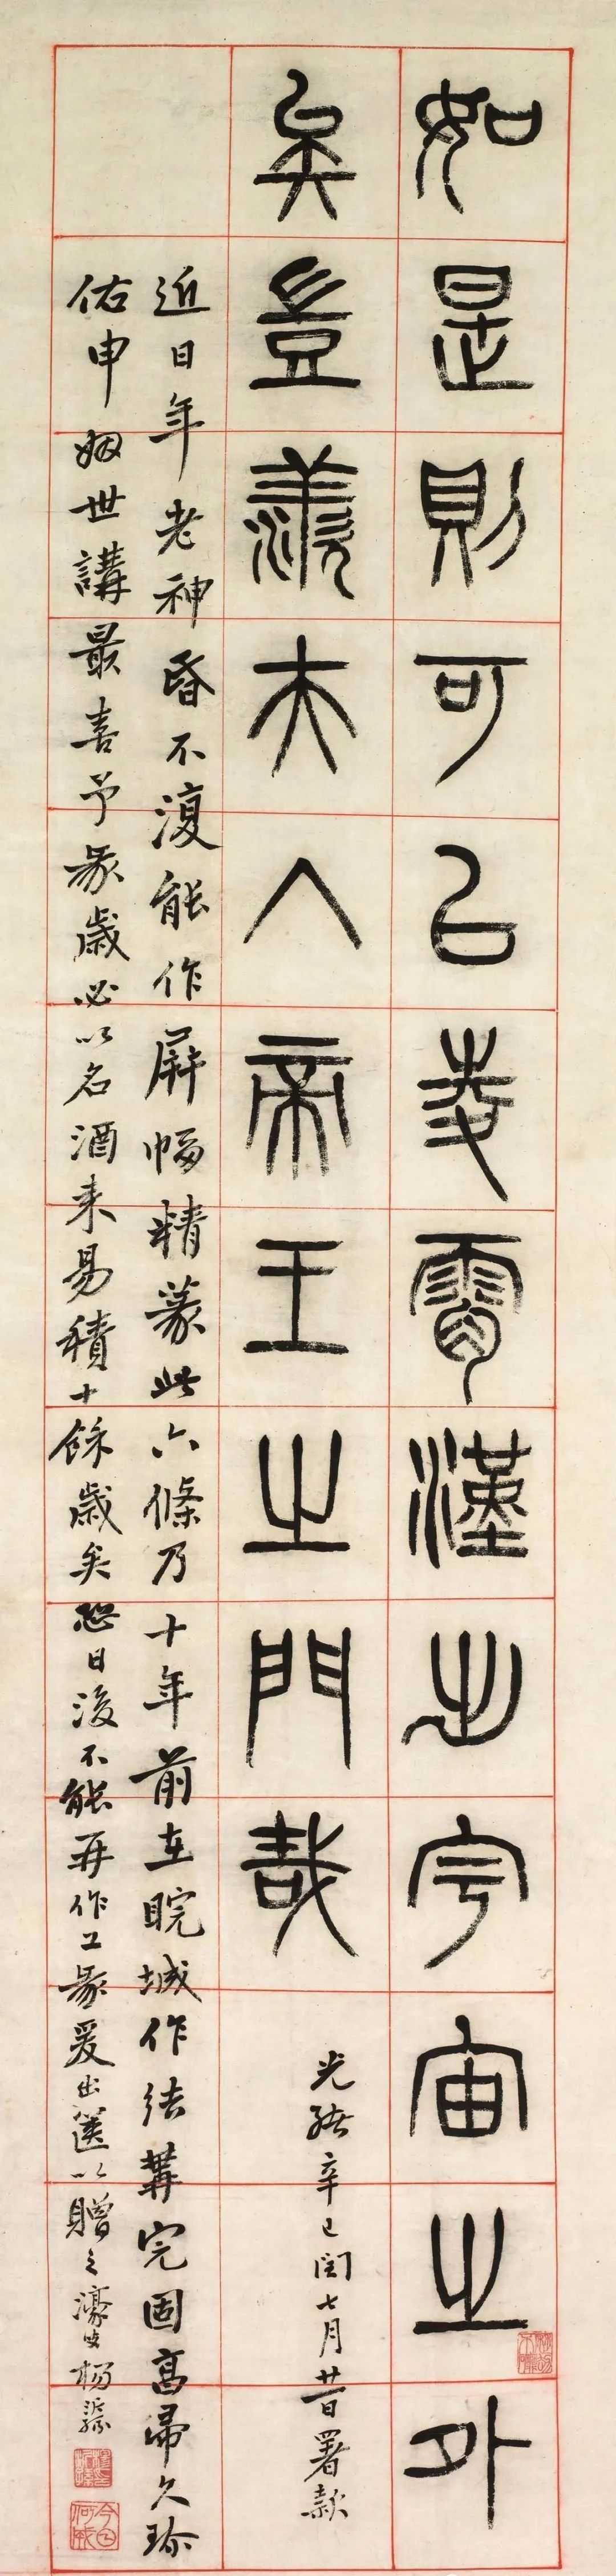 如是則可以凌霄漢出宇宙之外
矣豈羨夫入帝王之門哉
光緒辛巳閏七月昔署款
近日年老神昏不復能作屏幅精篆此六條乃十年前在睆城作結構完固高帚久珍
佑申姻世講最喜予篆歲必以名酒来易積十餘歲矣恐日後不能再作工篆爰出篋以贈之濠叟楊沂孫